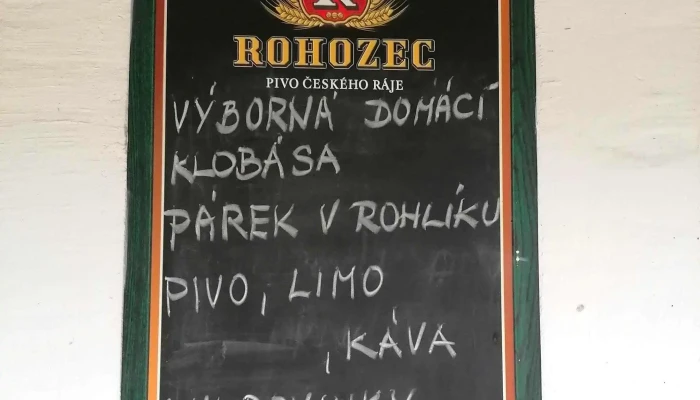 ROHOZEC
PIVO ČESKÉHO RÁJE
VÝBORNÁ DOMÁCÍ
KLOBÁSA
PÁREK V ROHLÍKU
PIVO, LIMO
, KÁVA